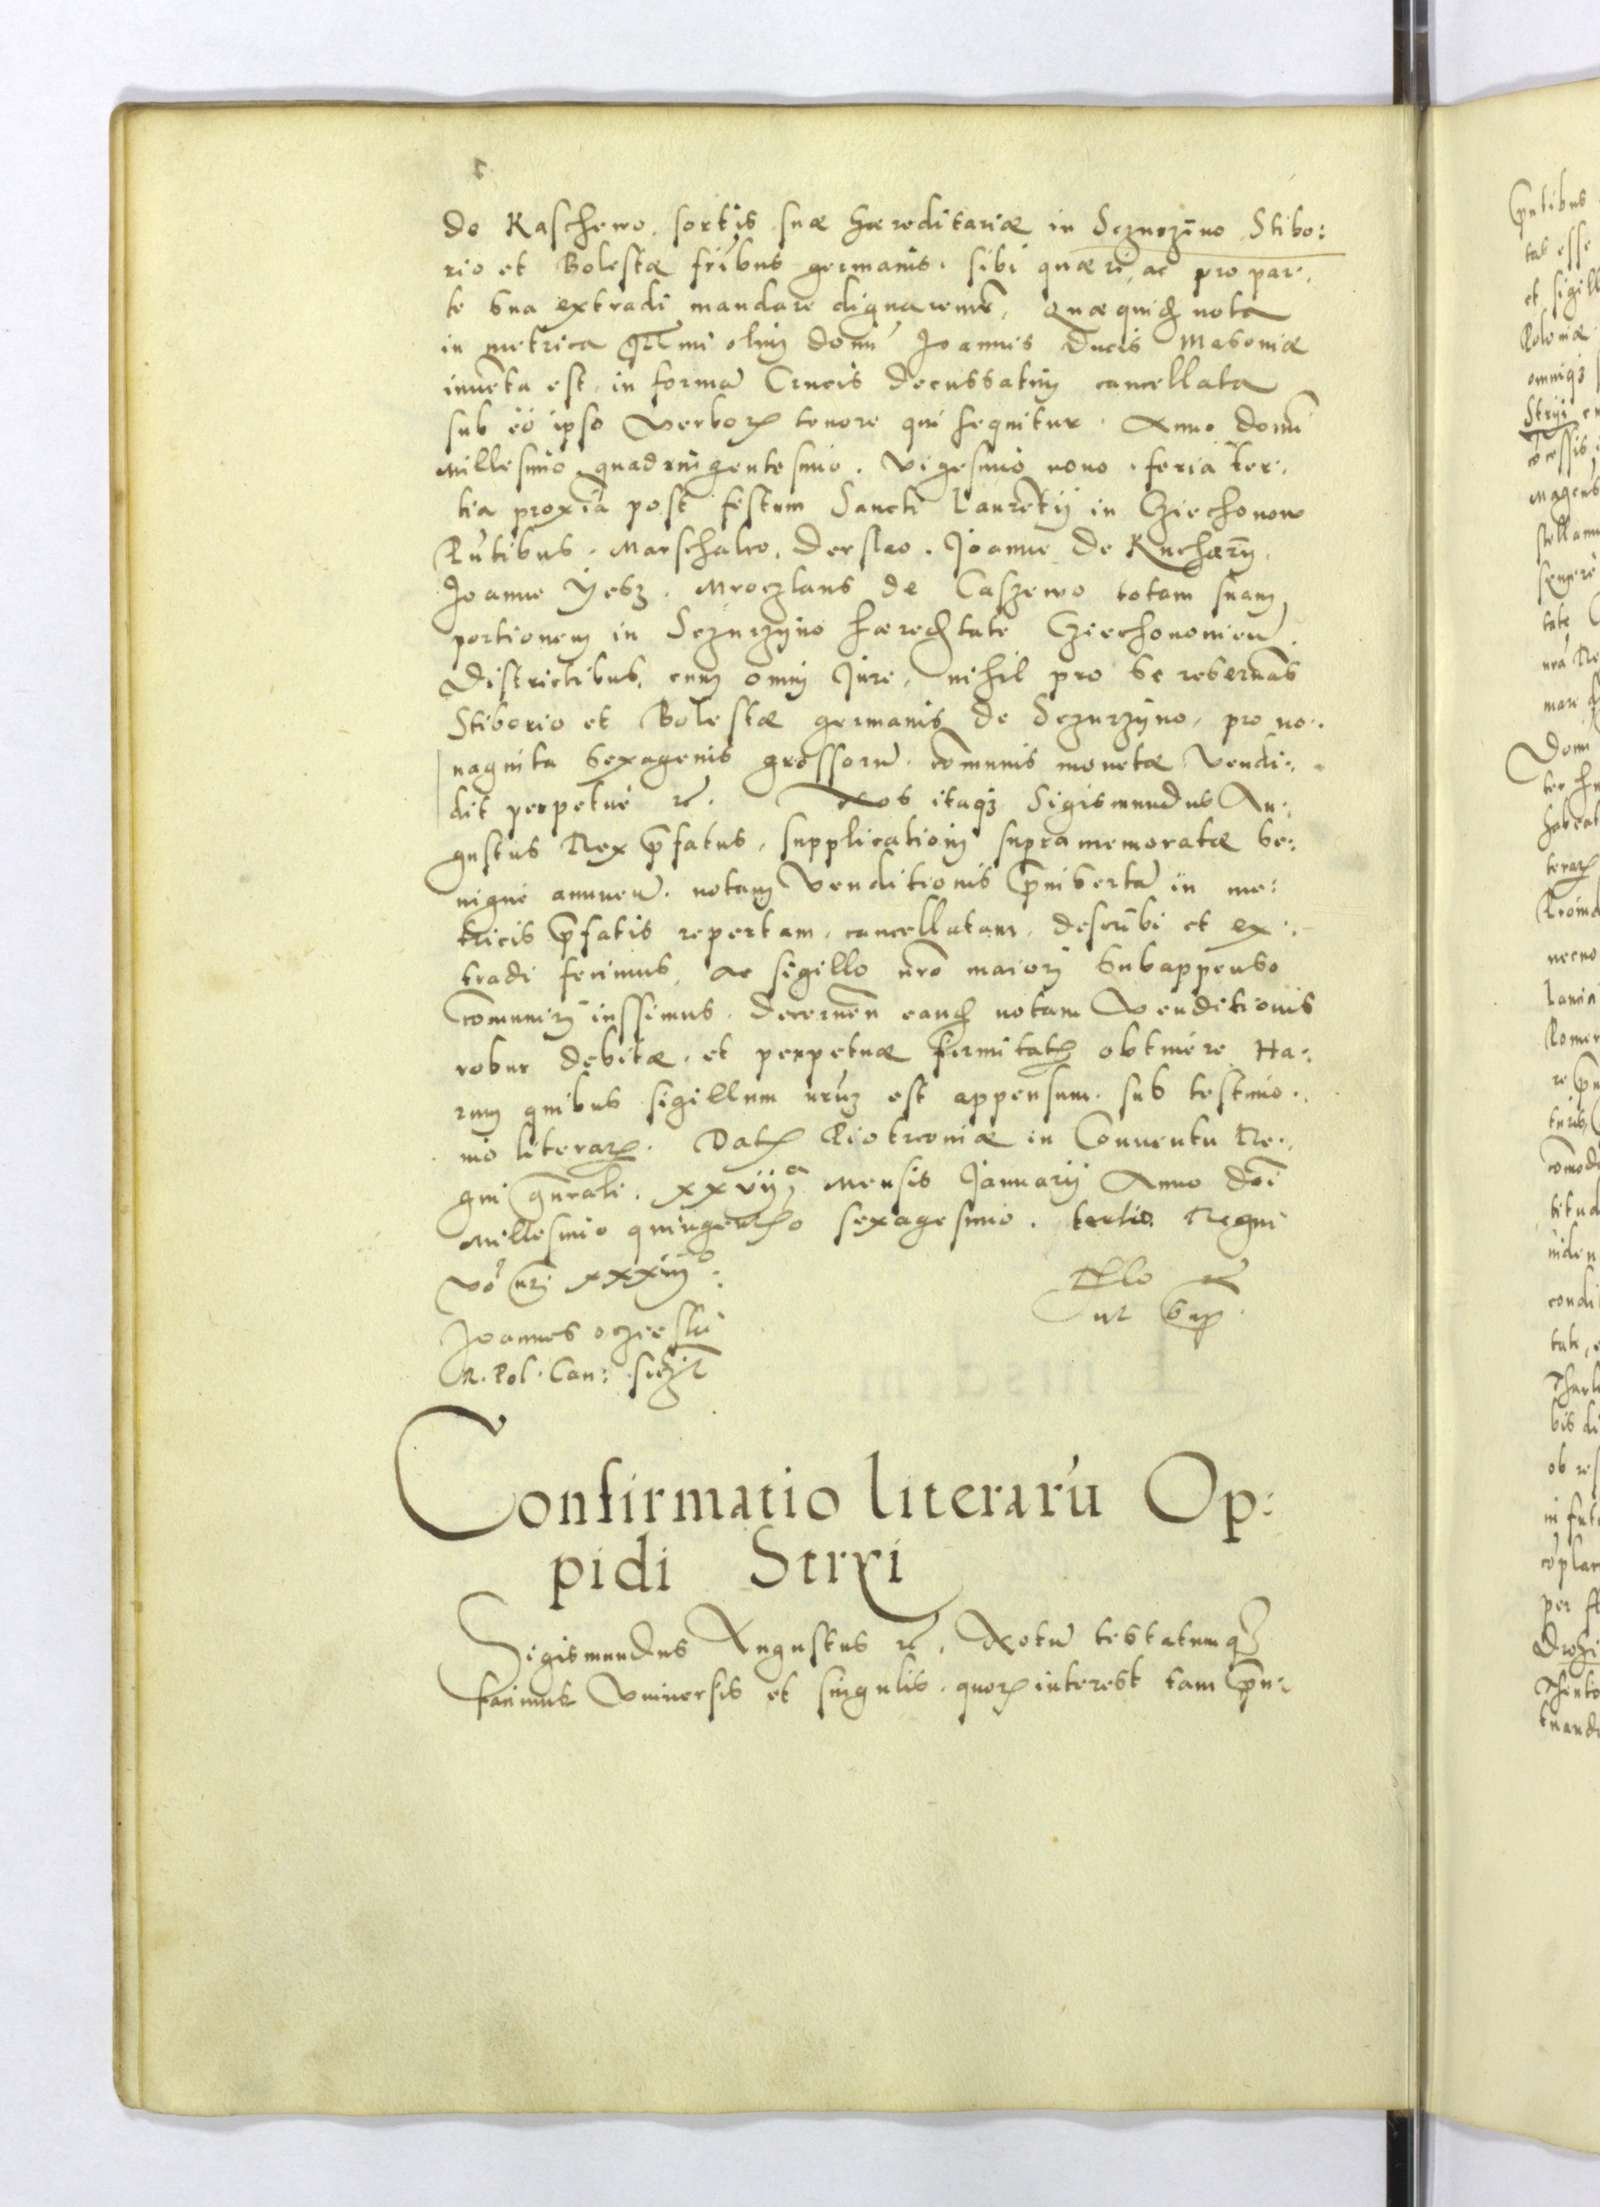 de Kaschewo, sortis suæ hæreditariæ in Sczurzÿno Stibo:
rio et Bolestæ fribus germanis. sibi quæri ac pro par,
te sua extradi mandare dignaremur. Quæquid nota
in metrica olim domi Joannis Ducis Masoviæ
inventa est in formā Crucis decussatim cancellata
sub eo ipso verborum tenore qui sequitur. Anno domi
Millesimo quadringentesimo. vigesimo nono, feria ter,
tia proxīa post festum Sancti Laurentij in Cziechonow
Pntibus. Marschalco, Derslao. Joanne de Kucharÿ,
Joanne Ÿesz. Mroczlaus de Caszewo totam suam
portionem in Sczurzÿno hæreditate Cziechonowien
Districtibus, cum omni Jure, nihil pro se reservans
Stiborio et Bolestæ germanis de Sczurzÿno, pro no..
naginta sexagenis grossorū. comunis monetæ Vendi:
dit perpetue rc. Nos itaqz Sigismundus Au:
gustus Rex pfatus, supplicationi supramemoratæ be:
nigne annuen. notam Venditionis in me:
tricis pfatis repertam, cancellatam, describi et ex.
tradi fecimus, ac sigillo nro maiori subappenso
communiri iussimus. decernen eand notam Venditionis
robur debitæ, et perpetuæ firmitatis obtinere. Ha:
rum quibus sigillum nrum est appensum. sub testimo.
nio literarum. Datum Piotrcoviæ in Conventu Re:
gni gnrali. xxvijª mensis Januarij Anno doi
Millesimo quingentmo sexagesimo. tertio Regni
vo nri xxxiiijº:
Rlo rc
ut sup
Joannes oczieski
R. Pol. Can: sspt
Confirmatio literarū Op:
pidi Strÿi
Sigismundus Augustus rc. Notū testatumq
facimus Universis et singulis. quorum interest tam pn: